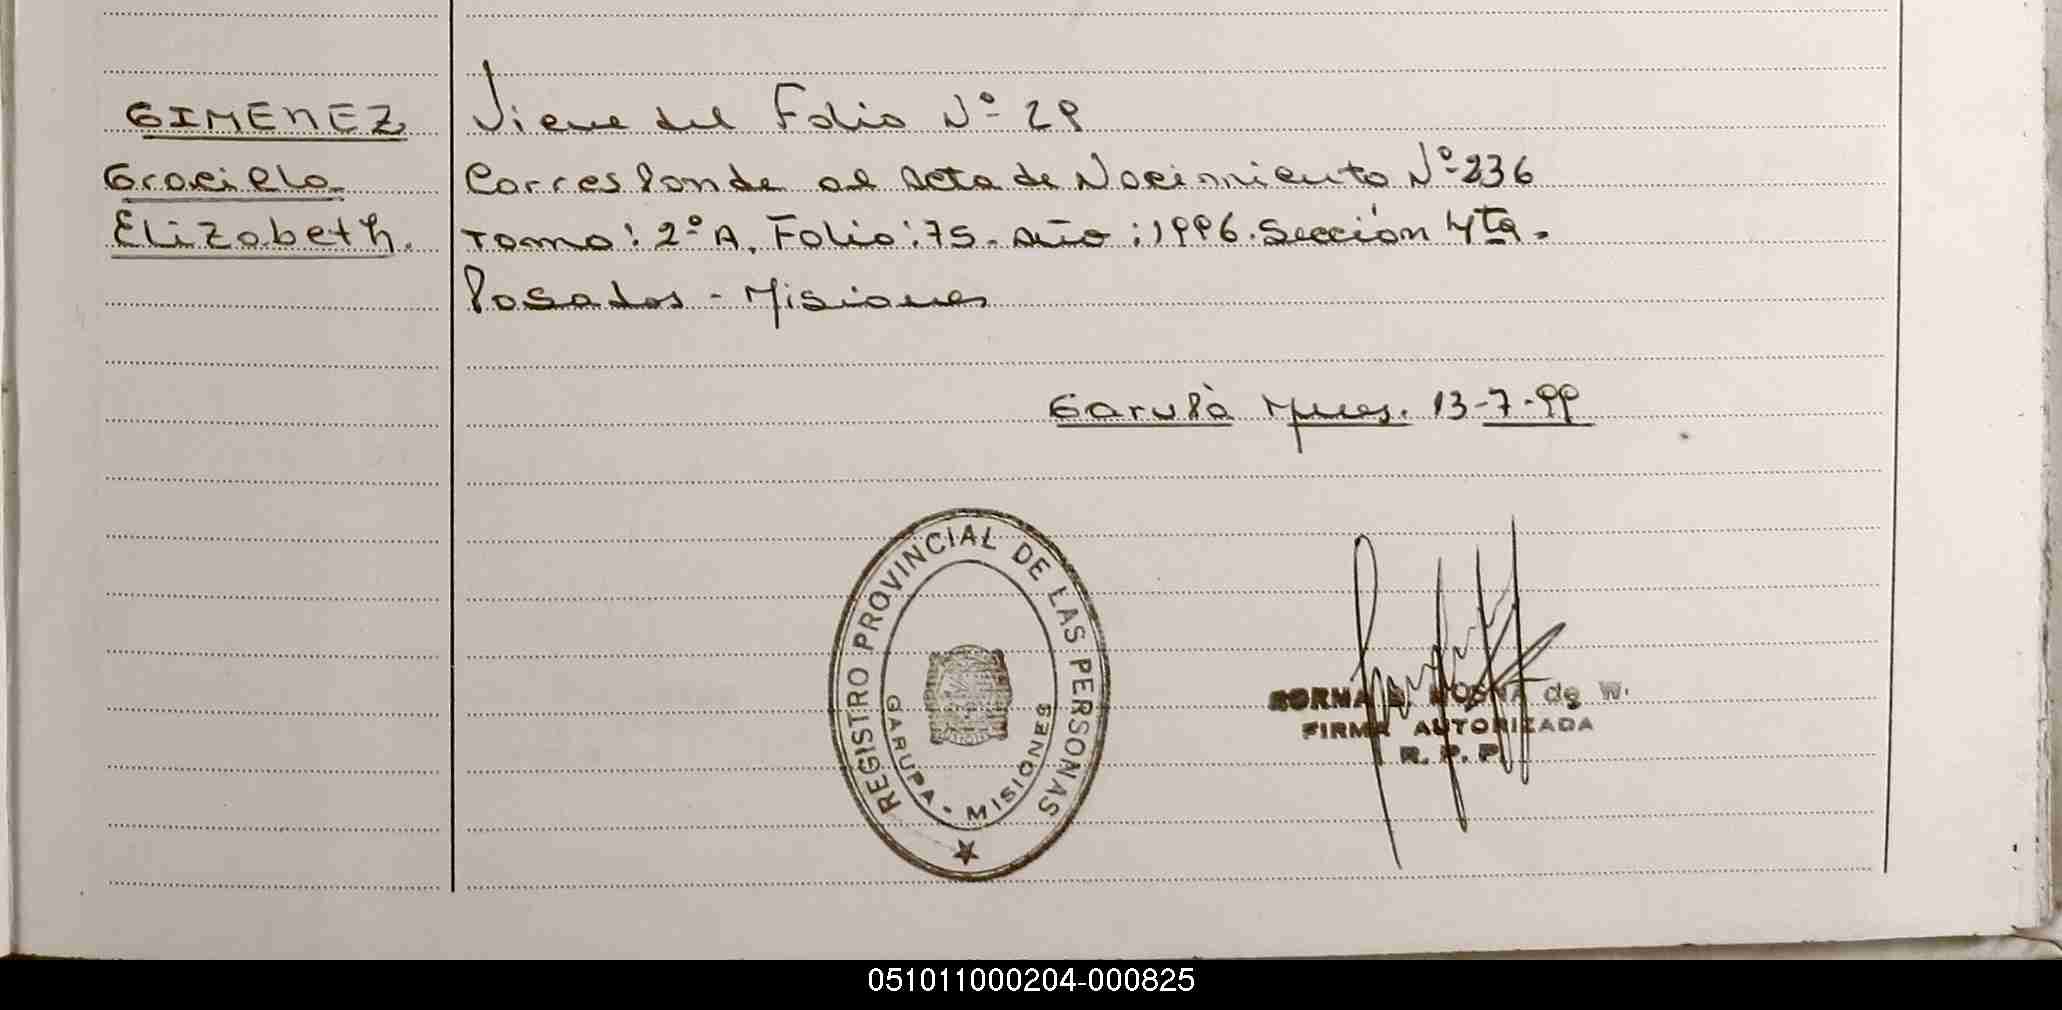 GIMENEZ
Graciela
Elizabeth.
Viene del Folio Nº 29
Corresponde al acta de Nacimiento Nº 236
Tomo: 2º A. Folio: 75. año: 1996. Sección 4ta.
Posadas - Misiones
Garupà Mnes. 13-7-99
REGISTRO PROVINCIAL DE LAS PERSONAS
GARUPA - MISIONES
NORMA de W.
FIRMA AUTORIZADA
R. P. P.
051011000204-000825